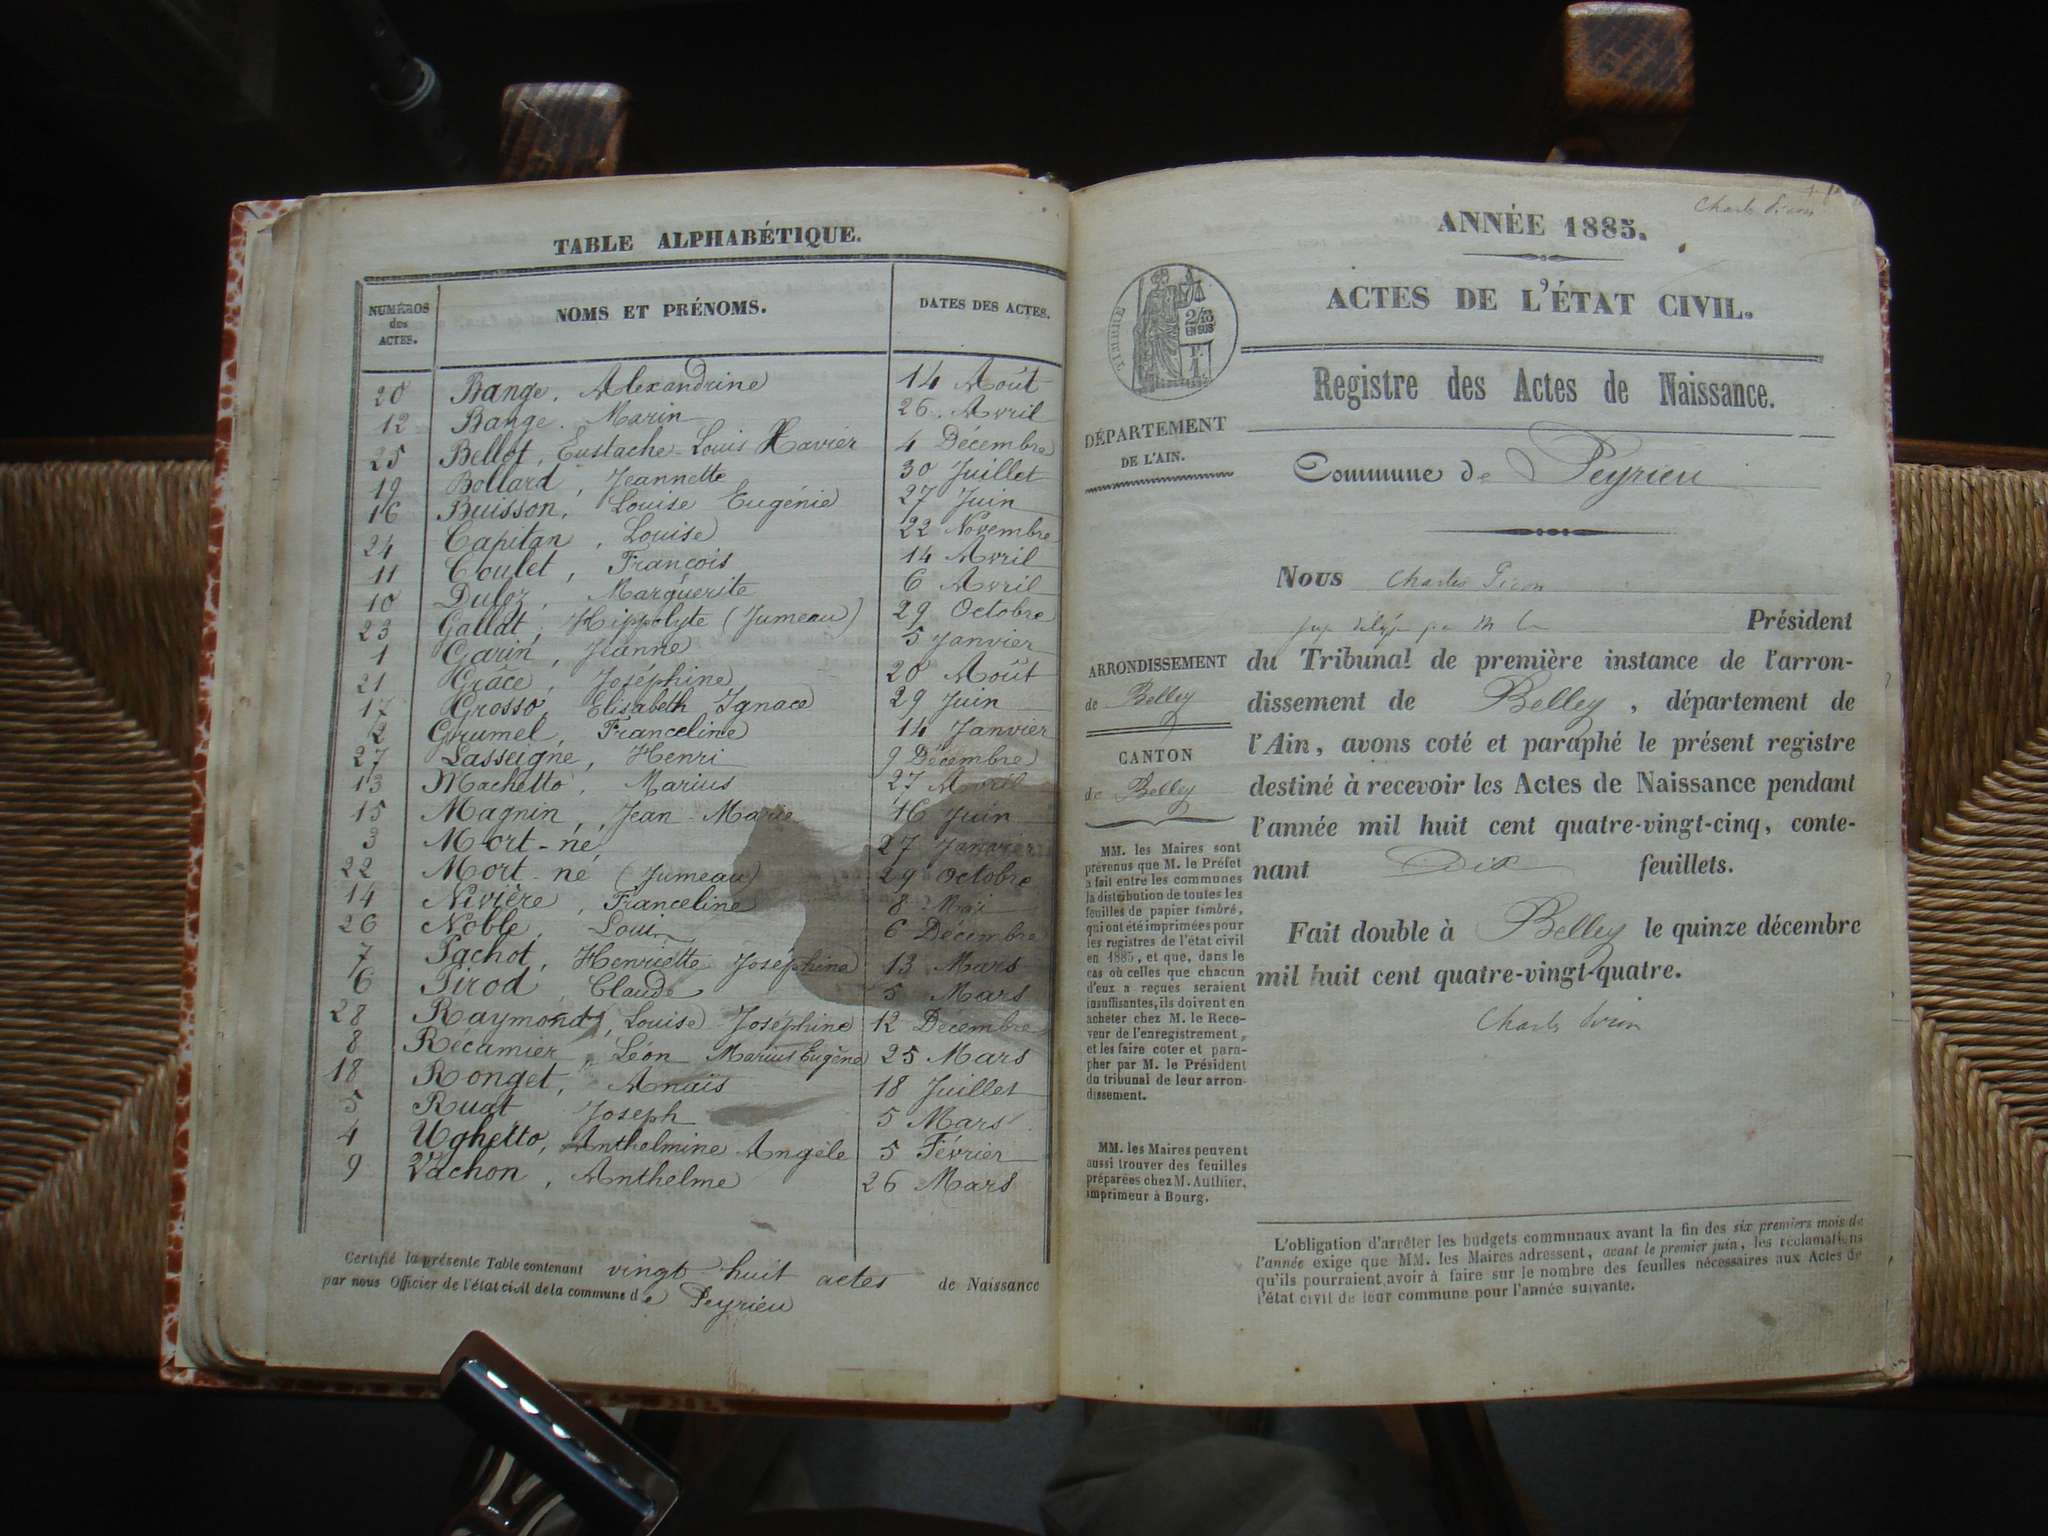 TABLE ALPHABÉTIQUE.
NUMÉROS des ACTES. NOMS ET PRÉNOMS. DATES DES ACTES.
20 Bange, Alexandrine 14 Août
12 Bange. Marin 26. Avril
25 Bellot, Eustache-Louis Xavier 4 Décembre
19 Bollard, Jeannette 30 Juillet
16 Buisson, Louise Eugénie 27 Juin
24 Capitan, Louise 22 Novembre
11 Coulet, François 14 Avril
10 Duloz, Marguerite 6 Avril
23 Gallat, Hippolyte (Jumeau) 29 Octobre
1 Garin, Jeanne 5 Janvier
21 Grâce, Joséphine 20 Août
17 Grosso, Elisabeth Ignace 29 Juin
2 Grumel, Franceline 14 Janvier
27 Lasseigne, Henri 9 Décembre
13 Machetto, Marius 27 Avril
15 Magnin, Jean-Marie 16 Juin
3 Mort-né 27 Janvier
22 Mort-né (Jumeau) 29 Octobre
14 Nivière, Franceline 8 Mai
26 Noble, Louis 6 Décembre
7 Pachot, Henriette Joséphine 13 Mars
6 Pirod Claude 5 Mars
28 Raymond, Louise Joséphine 12 Décembre
8 Récamier, Léon Marius Eugène 25 Mars
18 Ronget, Anaïs 18 Juillet
5 Ruat Joseph 5 Mars
4 Ughetto, Anthelmine Angèle 5 Février
9 Vachon, Anthelme 26 Mars
Certifié la présente Table contenant vingt huit actes de Naissance
par nous Officier de l'état civil de la commune de Peyrieu
Charles
ANNÉE 1885.
ACTES DE L'ÉTAT CIVIL.
TIMBRE
2/10
EN SUS
Registre des Actes de Naissance.
DÉPARTEMENT
DE L'AIN.
Commune de Peyrieu
Nous Charles
Président
ARRONDISSEMENT
de Belley
CANTON
de Belley
du Tribunal de première instance de l'arron-
dissement de Belley, département de
l'Ain, avons coté et paraphé le présent registre
destiné à recevoir les Actes de Naissance pendant
l'année mil huit cent quatre-vingt-cinq, conte-
nant Dix feuillets.
Fait double à Belley le quinze décembre
mil huit cent quatre-vingt-quatre.
Charles
MM. les Maires sont
prévenus que M. le Préfet
a fait entre les communes
la distribution de toutes les
feuilles de papier timbré,
qui ont été imprimées pour
les registres de l'état civil
en 1885, et que, dans le
cas où celles que chacun
d'eux a reçues seraient
insuffisantes, ils doivent en
acheter chez M. le Rece-
veur de l'enregistrement,
et les faire coter et para-
pher par M. le Président
du tribunal de leur arron-
dissement.
MM. les Maires peuvent
aussi trouver des feuilles
préparées chez M. Authier,
imprimeur à Bourg.
L'obligation d'arrêter les budgets communaux avant la fin des six premiers mois de
l'année exige que MM. les Maires adressent, avant le premier juin, les réclamations
qu'ils pourraient avoir à faire sur le nombre des feuilles nécessaires aux Actes de
l'état civil de leur commune pour l'année suivante.